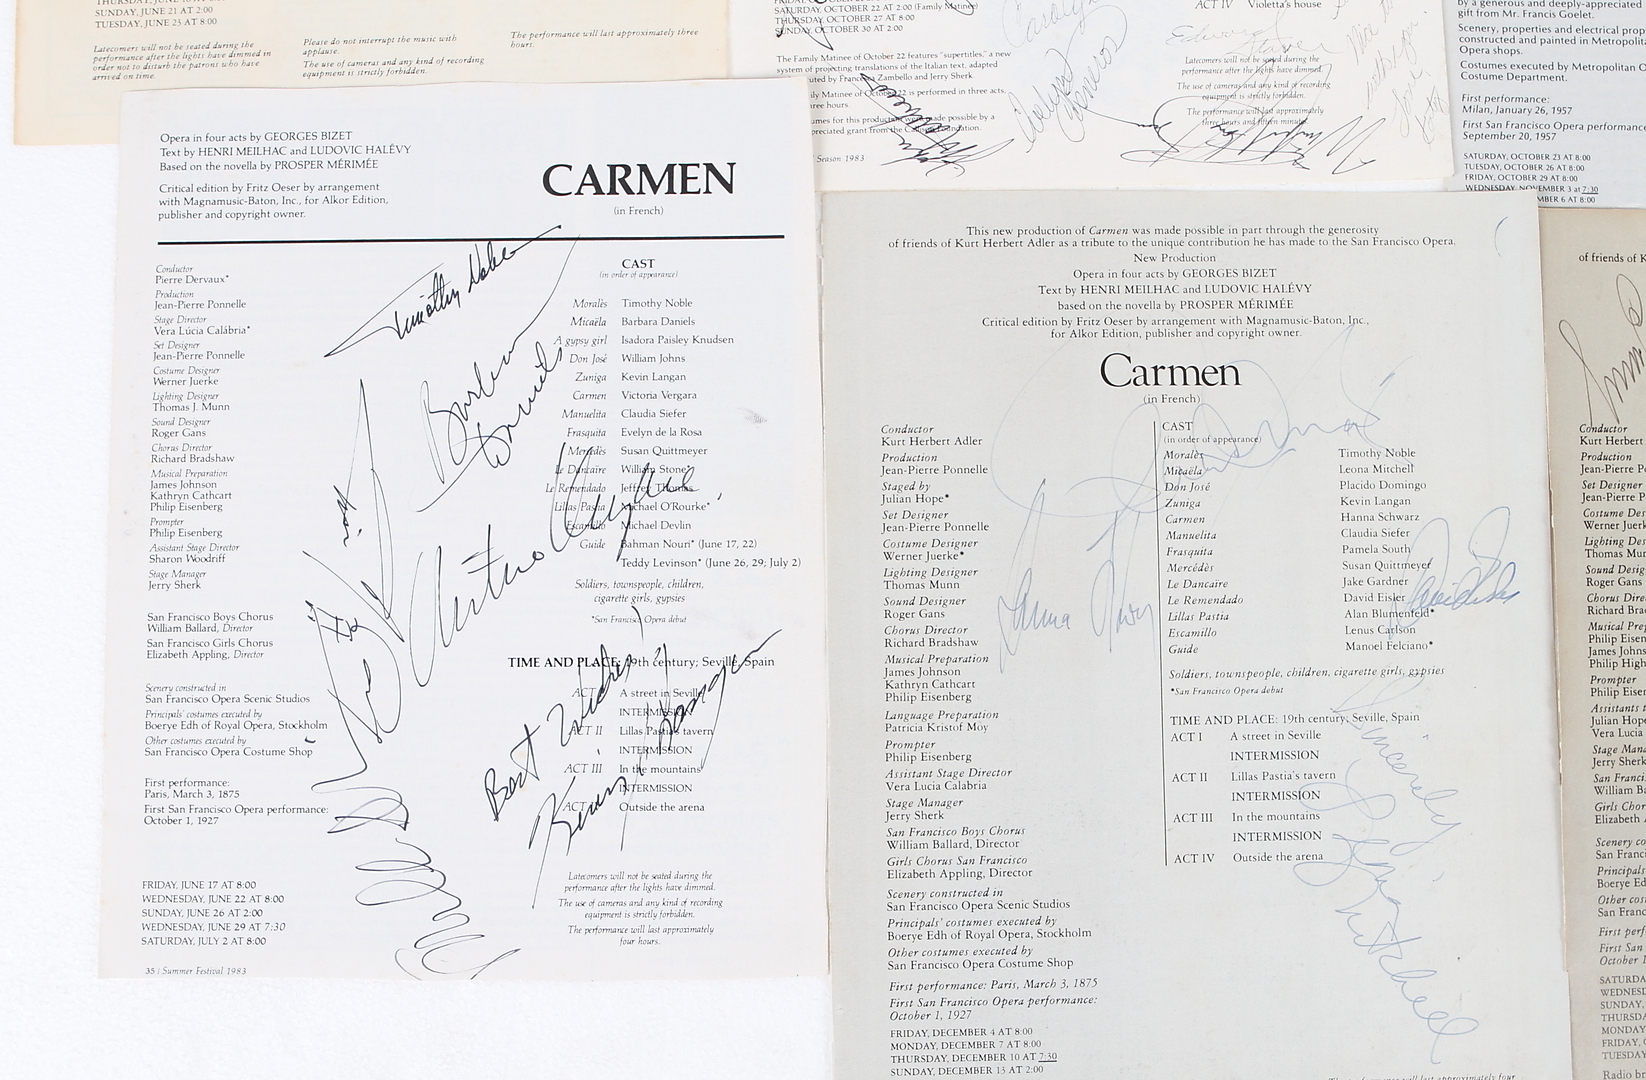 SUNDAY, JUNE 21 AT 2:00
TUESDAY, JUNE 23 AT 8:00
Latecomers will not be seated during the
performance after the lights have dimmed in
order not to disturb the patrons who have
arrived on time.
Please do not interrupt the music with
applause.
The use of cameras and any kind of recording
equipment is strictly forbidden.
The performance will last approximately three
hours.
SATURDAY, OCTOBER 22 AT 2:00 (Family Matinee)
THURSDAY, OCTOBER 27 AT 8:00
SUNDAY, OCTOBER 30 AT 2:00
The Family Matinee of October 22 features "supertitles," a new
system of projecting translations of the Italian text, adapted
uted by Francesca Zambello and Jerry Sherk.
ily Matinee of October 22 is performed in three acts,
ree hours.
umes for this production were made possible by a
preciated grant from the Foundation.
Season 1983
ACT IV Violetta's house
Latecomers will not be seated during the
performance after the lights have dimmed.
The use of cameras and any kind of recording
equipment is strictly forbidden.
The performance will last approximately
three hours and fifteen minutes.
by a generous and deeply-appreciated
gift from Mr. Francis Goelet.
Scenery, properties and electrical prop
constructed and painted in Metropolit
Opera shops.
Costumes executed by Metropolitan O
Costume Department.
First performance:
Milan, January 26, 1957
First San Francisco Opera performance
September 20, 1957
SATURDAY, OCTOBER 23 AT 8:00
TUESDAY, OCTOBER 26 AT 8:00
FRIDAY, OCTOBER 29 AT 8:00
WEDNESDAY, NOVEMBER 3 at 7:30
MBER 6 AT 8:00
Opera in four acts by GEORGES BIZET
Text by HENRI MEILHAC and LUDOVIC HALÉVY
Based on the novella by PROSPER MÉRIMÉE
Critical edition by Fritz Oeser by arrangement
with Magnamusic-Baton, Inc., for Alkor Edition,
publisher and copyright owner.
CARMEN
(in French)
Conductor
Pierre Dervaux*
Production
Jean-Pierre Ponnelle
Stage Director
Vera Lúcia Calábria*
Set Designer
Jean-Pierre Ponnelle
Costume Designer
Werner Juerke
Lighting Designer
Thomas J. Munn
Sound Designer
Roger Gans
Chorus Director
Richard Bradshaw
Musical Preparation
James Johnson
Kathryn Cathcart
Philip Eisenberg
Prompter
Philip Eisenberg
Assistant Stage Director
Sharon Woodriff
Stage Manager
Jerry Sherk
San Francisco Boys Chorus
William Ballard, Director
San Francisco Girls Chorus
Elizabeth Appling, Director
Scenery constructed in
San Francisco Opera Scenic Studios
Principals' costumes executed by
Boerye Edh of Royal Opera, Stockholm
Other costumes executed by
San Francisco Opera Costume Shop
First performance:
Paris, March 3, 1875
First San Francisco Opera performance:
October 1, 1927
FRIDAY, JUNE 17 AT 8:00
WEDNESDAY, JUNE 22 AT 8:00
SUNDAY, JUNE 26 AT 2:00
WEDNESDAY, JUNE 29 AT 7:30
SATURDAY, JULY 2 AT 8:00
35 / Summer Festival 1983
CAST
(in order of appearance)
Moralès Timothy Noble
Micaëla Barbara Daniels
A gypsy girl Isadora Paisley Knudsen
Don José William Johns
Zuniga Kevin Langan
Carmen Victoria Vergara
Manuelita Claudia Siefer
Frasquita Evelyn de la Rosa
Mercédès Susan Quittmeyer
Le Dancaire William Stone
Le Remendado Jeffrey Thomas
Lillas Pastia Michael O'Rourke*
Escamillo Michael Devlin
Guide Bahman Nouri* (June 17, 22)
Teddy Levinson* (June 26, 29; July 2)
Soldiers, townspeople, children,
cigarette girls, gypsies
*San Francisco Opera debut
TIME AND PLACE: 19th century; Seville, Spain
ACT I A street in Seville
INTERMISSION
ACT II Lillas Pastia's tavern
INTERMISSION
ACT III In the mountains
INTERMISSION
ACT Outside the arena
Latecomers will not be seated during the
performance after the lights have dimmed.
The use of cameras and any kind of recording
equipment is strictly forbidden.
The performance will last approximately
four hours.
Timothy Noble
Barbara
Daniels
Best Wishes
Kevin Langan
This new production of Carmen was made possible in part through the generosity
of friends of Kurt Herbert Adler as a tribute to the unique contribution he has made to the San Francisco Opera.
New Production
Opera in four acts by GEORGES BIZET
Text by HENRI MEILHAC and LUDOVIC HALÉVY
based on the novella by PROSPER MÉRIMÉE
Critical edition by Fritz Oeser by arrangement with Magnamusic-Baton, Inc.,
for Alkor Edition, publisher and copyright owner.
Carmen
(in French)
Conductor
Kurt Herbert Adler
Production
Jean-Pierre Ponnelle
Staged by
Julian Hope*
Set Designer
Jean-Pierre Ponnelle
Costume Designer
Werner Juerke*
Lighting Designer
Thomas Munn
Sound Designer
Roger Gans
Chorus Director
Richard Bradshaw
Musical Preparation
James Johnson
Kathryn Cathcart
Philip Eisenberg
Language Preparation
Patricia Kristof Moy
Prompter
Philip Eisenberg
Assistant Stage Director
Vera Lucia Calabria
Stage Manager
Jerry Sherk
San Francisco Boys Chorus
William Ballard, Director
Girls Chorus San Francisco
Elizabeth Appling, Director
Scenery constructed in
San Francisco Opera Scenic Studios
Principals' costumes executed by
Boerye Edh of Royal Opera, Stockholm
Other costumes executed by
San Francisco Opera Costume Shop
First performance: Paris, March 3, 1875
First San Francisco Opera performance:
October 1, 1927
FRIDAY, DECEMBER 4 AT 8:00
MONDAY, DECEMBER 7 AT 8:00
THURSDAY, DECEMBER 10 AT 7:30
SUNDAY, DECEMBER 13 AT 2:00
CAST
(in order of appearance)
Moralès Timothy Noble
Micaëla Leona Mitchell
Don José Placido Domingo
Zuniga Kevin Langan
Carmen Hanna Schwarz
Manuelita Claudia Siefer
Frasquita Pamela South
Mercédès Susan Quittmeyer
Le Dancaire Jake Gardner
Le Remendado David Eisler
Lillas Pastia Alan Blumenfeld*
Escamillo Lenus Carlson
Guide Manoel Felciano*
Soldiers, townspeople, children, cigarette girls, gypsies
*San Francisco Opera debut
TIME AND PLACE: 19th century; Seville, Spain
ACT I A street in Seville
INTERMISSION
ACT II Lillas Pastia's tavern
INTERMISSION
ACT III In the mountains
INTERMISSION
ACT IV Outside the arena
David Eisler
Sincerely
Leona
Mitchell
of friends of K
Conductor
Kurt Herbert
Production
Jean-Pierre P
Set Designer
Jean-Pierre P
Costume Des
Werner Juerk
Lighting Des
Thomas Mun
Sound Design
Roger Gans
Chorus Dire
Richard Bra
Musical Pre
Philip Eisen
James Johns
Philip High
Prompter
Philip Eisen
Assistants t
Julian Hope
Vera Lucia
Stage Mana
Jerry Sherk
San Franci
William Ba
Girls Chor
Elizabeth A
Scenery co
San Franci
Principals
Boerye Ed
Other cos
San Franc
First perf
First San
October 1
SATURDA
WEDNESD
SUNDAY,
THURSDA
MONDAY
FRIDAY,
TUESDAY
Radio br